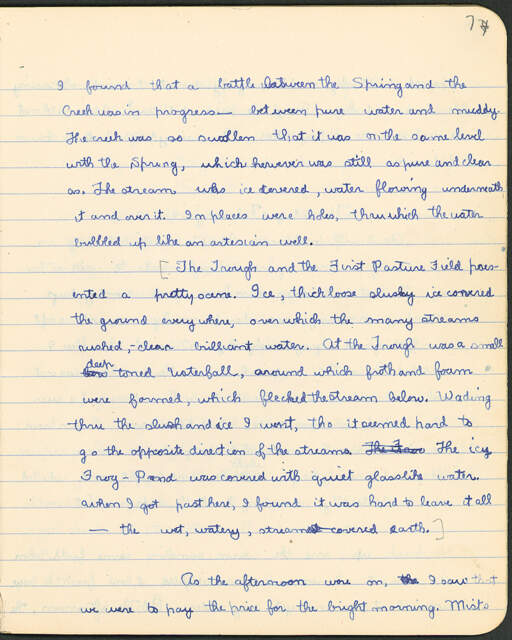 77
I found that a battle between the Spring and the
Creek was in progress — between pure water and muddy.
The creek was so swollen that it was on the same level
with the Spring, which however was still as pure and clear
as. The stream was ice covered, water flowing underneath
it and over it. In places were holes, thru which the water
bubbled up like an artesian well.
[ The Trough and the First Pasture Field pres-
ented a pretty scene. Ice, thick loose slushy ice covered
the ground everywhere, over which the many streams
rushed, - clear brilliant water. At the Trough was a small
deep
toned waterfall, around which froth and foam
were formed, which flecked the stream below. Wading
thru the slush and ice I went, tho it seemed hard to
go the opposite direction of the streams. The icy
Frog-Pond was covered with quiet glasslike water.
When I got past here, I found it was hard to leave it all
— the wet, watery, stream covered earth. ]
As the afternoon wore on, I saw that
we were to pay the price for the bright morning. Mists